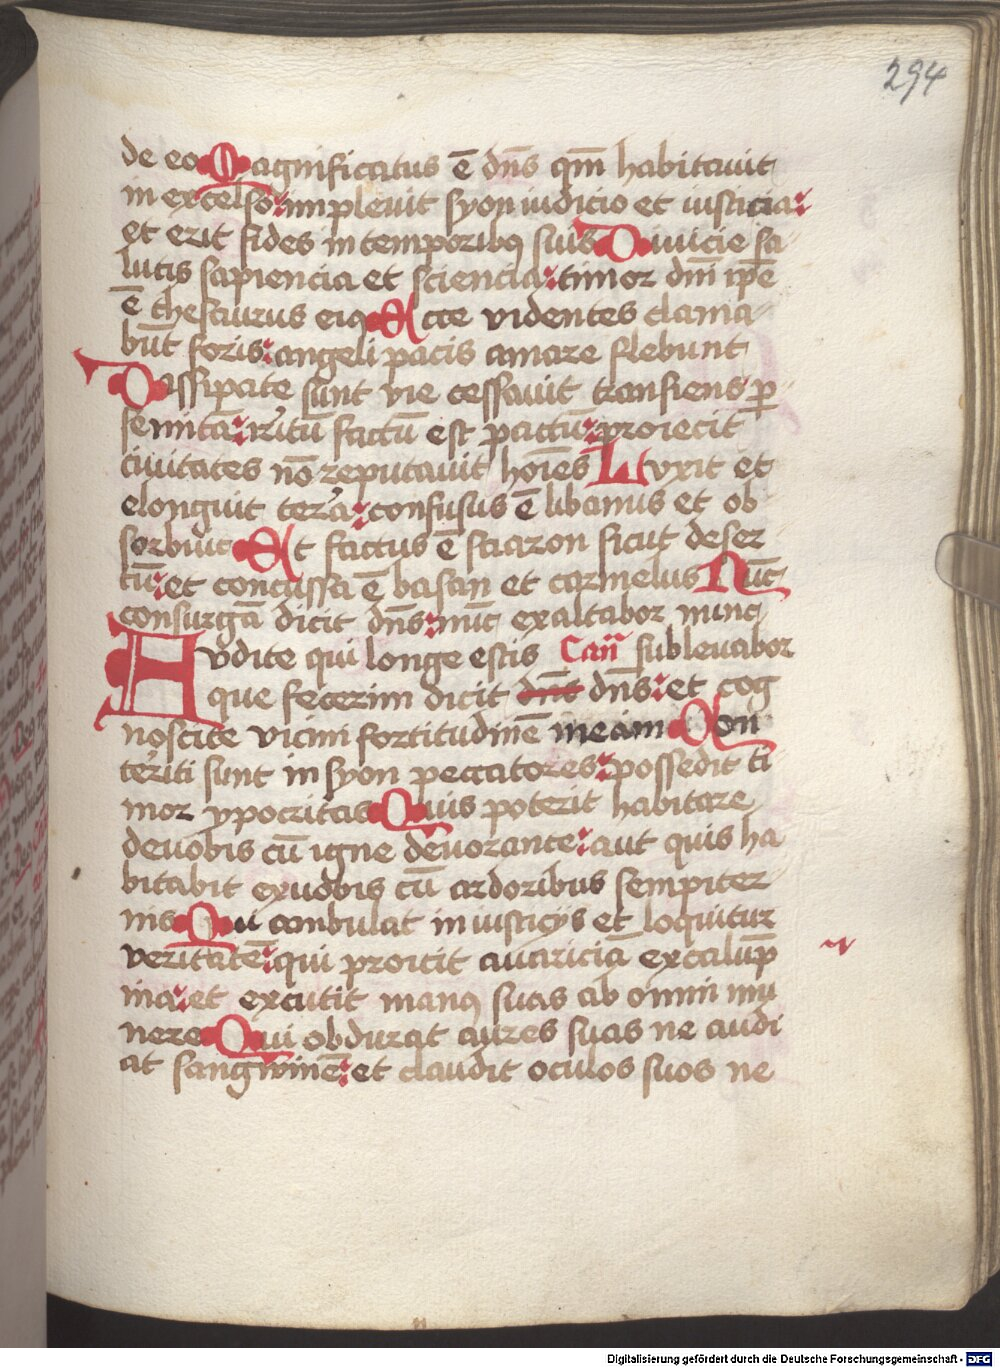 294
de eo Magnificatus ē dn̄s qm̄ habitauit
in excelso: impleuit syon iudicio et iusticia:
et erit fides in temporibꝫ suis Diuicie sa-
lutis sapiencia et sciencia: timor dm̄ ip̄e
ē thesaurus eiꝰ Ecce videntes clama-
būt foris: angeli pacis amare flebunt
Dissipate sunt vie cessauit transiens p̄
semitā: irritū factū est pactū: proiecit
ciuitates nō reputauit hoīes Luxit et
elonguit terra: confusus ē libanus et ob-
sorbuit Et factus ē saaron sicut deser-
tū: et concussa ē basan et carmelus Nūc
consurgā dicit dn̄s: nūc exaltabor nunc
Audite qui longe estis Can̄ subleuabor
que fecerim dicit dn̄t dn̄s: et cog
noscite vicini fortitudinē meam Con
territi sunt in syon peccatores: possedit ti
mor ypocritas Quis poterit habitare
de uobis cū igne deuorante: aut quis ha
bitabit ex uobis cū ardoribus sempiter-
nis Qui ambulat in iusticijs et loquitur
veritatē: qui proicit auariciā ex calūp
nia: et excutit manꝰ suas ab omni mu
nere Qui obdurat aures suas ne audi
at sangwinē: et claudit oculos suos ne
Digitalisierung gefördert durch die Deutsche Forschungsgemeinschaft - DFG